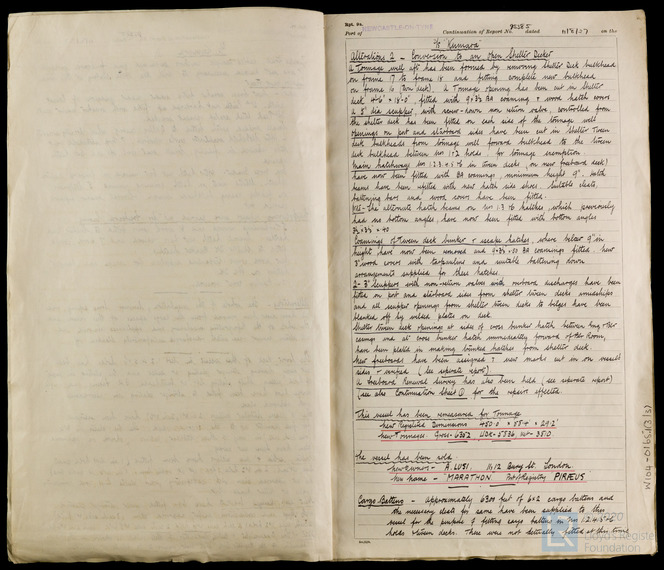 Rpt. No.
Port of NEWCASTLE-ON-TYNE Continuation of Report No. 98585 dated on the
S/S "Kumara
Alterations 2 - Conversion to an Open Shelter Decker
A Tonnage well aft has been formed by removing Shelter Deck bulkhead
on frame 17 to frame 18 and fitting complete new bulkhead
on frame 16 (Twn deck). A Tonnage opening has been cut in Shelter
deck 4'-6" x 18'-0" fitted with BA coaming & wood hatch covers
A 5" dia scupper, with screw-down non return valve, controlled from
the shelter deck has been fitted on each side of the tonnage well
openings on port and starboard sides have been cut in Shelter Tween
deck bulkheads from tonnage well forward bulkhead to the tween
deck bulkhead between Nos 1 & 2 holds for tonnage exemption
Main hatchways Nos 1.2.3.4.5 & 6 in tween decks, (on new freeboard deck)
have now been fitted with BA coamings, minimum height 9". Hatch
beams have been refitted with new hatch side shoes. Suitable cleats,
battening bars and wood covers have been fitted.
The alternate hatch beams on Nos 1.3 & 6 hatches, which previously
had no bottom angles, have now been fitted with bottom angles
3½ x 3½ x 40
Coamings of Tween deck bunker & escape hatches, where below 9" in
height have now been removed and BA coamings fitted. New
3" wood covers with tarpaulins and suitable battening down
arrangements supplied for these hatches.
2 - 3" Scuppers with non-return valves with overboard discharges have been
fitted on port and starboard sides from shelter tween decks amidships
and all scupper openings from shelter tween decks to bilges have been
blanked off by welded plates on deck.
Shelter tween deck openings at sides of cross bunker hatch between Eng & Blr
casings and at cross bunker hatch immediately forward of Blr Room,
have been plated in making trunked hatches from shelter deck.
New freeboards have been assigned & new marks cut in on vessel's
sides & verified (See separate report)
A freeboard Renewal Survey has also been held (see separate report)
(see also Continuation Sheet ① for the repairs effected.
This vessel has been remeasured for Tonnage
New Registered Dimensions 450.0 x 55.4 x 29.2'
New Tonnages. Gross = 6352 UDK = 5536 Net = 3510
The vessel has been sold
New Owners - A. LUSI. 10/12 Bury St. London.
New name - "MARATHON" Port of Registry PIRÆUS
Cargo Battens - approximately 6300 feet of 6x2 cargo battens and
the necessary cleats for same have been supplied to this
vessel for the purpose of fitting cargo battens in Nos 1.2.4.5 & 6
holds & tween decks. These were not actually fitted at this time
© 2020
Lloyd's Register
Foundation